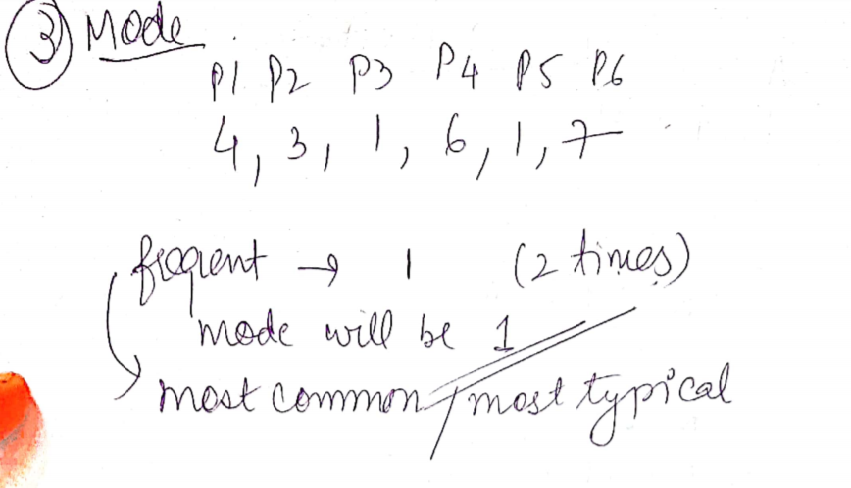 3 Mode
P1 P2 P3 P4 P5 P6
4, 3, 1, 6, 1, 7
frequent → 1 (2 times)
mode will be 1
most common / most typical